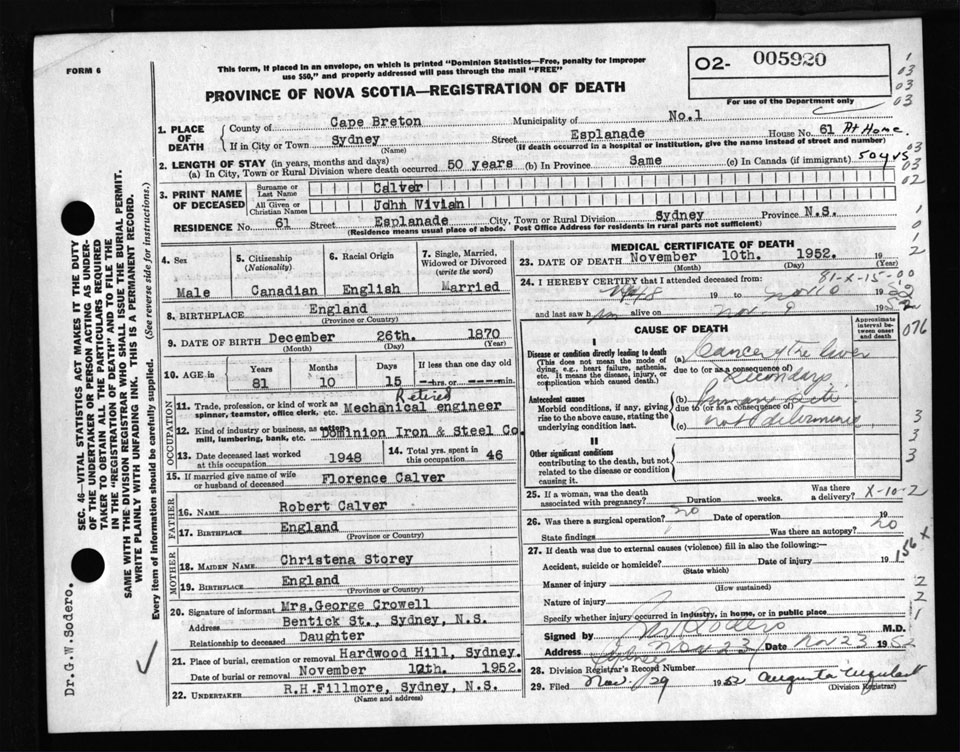 FORM 6
This form, if placed in an envelope, on which is printed "Dominion Statistics—Free, penalty for improper
use $50," and properly addressed will pass through the mail "FREE"
PROVINCE OF NOVA SCOTIA—REGISTRATION OF DEATH
O2- 005920
For use of the Department only
1. PLACE OF DEATH
County of Cape Breton Municipality of No.1
If in City or Town Sydney Street Esplanade House No. 61 At Home.
(Name) (If death occurred in a hospital or institution, give the name instead of street and number)
2. LENGTH OF STAY (in years, months and days)
(a) In City, Town or Rural Division where death occurred 50 years (b) In Province Same (c) In Canada (if immigrant) 50 yrs
3. PRINT NAME OF DECEASED
Surname or Last Name Calver
All Given or Christian Names John Vivian
RESIDENCE No. 61 Street Esplanade City, Town or Rural Division Sydney Province N.S.
(Residence means usual place of abode. Post Office Address for residents in rural parts not sufficient)
4. Sex
Male
5. Citizenship
(Nationality)
Canadian
6. Racial Origin
English
7. Single, Married, Widowed or Divorced
(write the word)
Married
8. BIRTHPLACE England
(Province or Country)
9. DATE OF BIRTH December 26th. 1870
(Month) (Day) (Year)
10. AGE in Years Months Days If less than one day old
81 10 15 --hrs. or ----min.
OCCUPATION
11. Trade, profession, or kind of work as Retired
spinner, teamster, office clerk, etc. Mechanical engineer
12. Kind of industry or business, as
mill, lumbering, bank, etc. Dominion Iron & Steel Co.
13. Date deceased last worked at this occupation 1948
14. Total yrs. spent in this occupation 46
15. If married give name of wife or husband of deceased Florence Calver
FATHER
16. NAME Robert Calver
17. BIRTHPLACE England
(Province or Country)
MOTHER
18. MAIDEN NAME Christena Storey
19. BIRTHPLACE England
(Province or Country)
20. Signature of informant Mrs.George Crowell
Address Bentick St., Sydney, N.S.
Relationship to deceased Daughter
21. Place of burial, cremation or removal Hardwood Hill, Sydney.
Date of burial or removal November 12th. 1952.
22. UNDERTAKER R.H.Fillmore, Sydney, N.S.
(Name and address)
MEDICAL CERTIFICATE OF DEATH
23. DATE OF DEATH November 10th. 1952.
(Month) (Day) (Year)
81-X-15-00
24. I HEREBY CERTIFY that I attended deceased from:
19 to Nov 10 1952
and last saw him alive on Nov 9 1952
CAUSE OF DEATH
Approximate interval between onset and death
076
I
Disease or condition directly leading to death
(This does not mean the mode of dying, e.g., heart failure, asthenia, etc. It means the disease, injury, or complication which caused death.)
(a) Cancer of the liver
due to (or as a consequence of)
Secondary
Antecedent causes
Morbid conditions, if any, giving rise to the above cause, stating the underlying condition last.
(b) Primary site
due to (or as a consequence of)
(c) not determined
II
Other significant conditions
contributing to the death, but not related to the disease or condition causing it.
25. If a woman, was the death associated with pregnancy? Duration weeks. Was there a delivery?
X-10-2
26. Was there a surgical operation? no Date of operation 19
State findings Was there an autopsy? no
156 X
27. If death was due to external causes (violence) fill in also the following:—
Accident, suicide or homicide? Date of injury 19
(State which)
Manner of injury
(How sustained)
Nature of injury
Specify whether injury occurred in industry, in home, or in public place
Signed by M.D.
Address Sydney Nov 23 Date Nov 23 1952
28. Division Registrar's Record Number
29. Filed Nov. 29 1952 Augusta
(Division Registrar)
SEC. 46—VITAL STATISTICS ACT MAKES IT THE DUTY
OF THE UNDERTAKER OR PERSON ACTING AS UNDER-
TAKER TO OBTAIN ALL THE PARTICULARS REQUIRED
IN THE "REGISTRATION OF DEATH" AND TO FILE THE
SAME WITH THE DIVISION REGISTRAR WHO SHALL ISSUE THE BURIAL PERMIT.
WRITE PLAINLY WITH UNFADING INK. THIS IS A PERMANENT RECORD.
Every item of information should be carefully supplied. (See reverse side for instructions.)
Dr.G.W.Sodero.